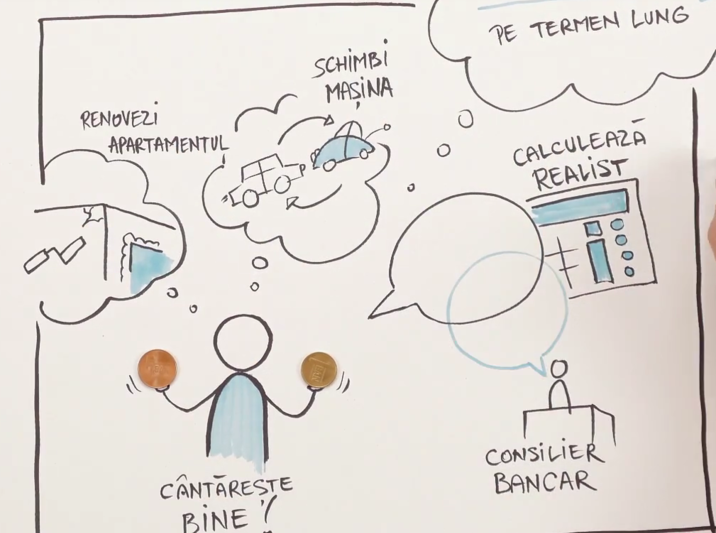 PE TERMEN LUNG
SCHIMBI
MAȘINA
RENOVEZI
APARTAMENTUL
CALCULEAZĂ
REALIST
CÂNTĂREȘTE
BINE!
CONSILIER
BANCAR